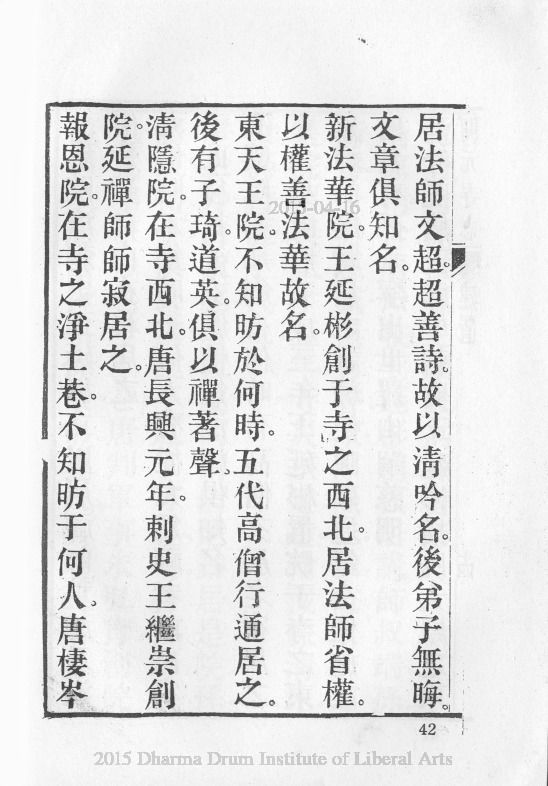 居法師文超。超善詩。故以清吟名。後弟子無晦。
文章俱知名。
新法華院。王延彬創于寺之西北。居法師省權。
以權善法華故名。
東天王院。不知昉於何時。五代高僧行通居之。
後有子琦。道英。俱以禪著聲。
清隱院。在寺西北。唐長興元年。刺史王繼崇創
院。延禪師師寂居之。
報恩院。在寺之淨土巷。不知昉于何人。唐棲岑
42
2015-04-16
2015 Dharma Drum Institute of Liberal Arts